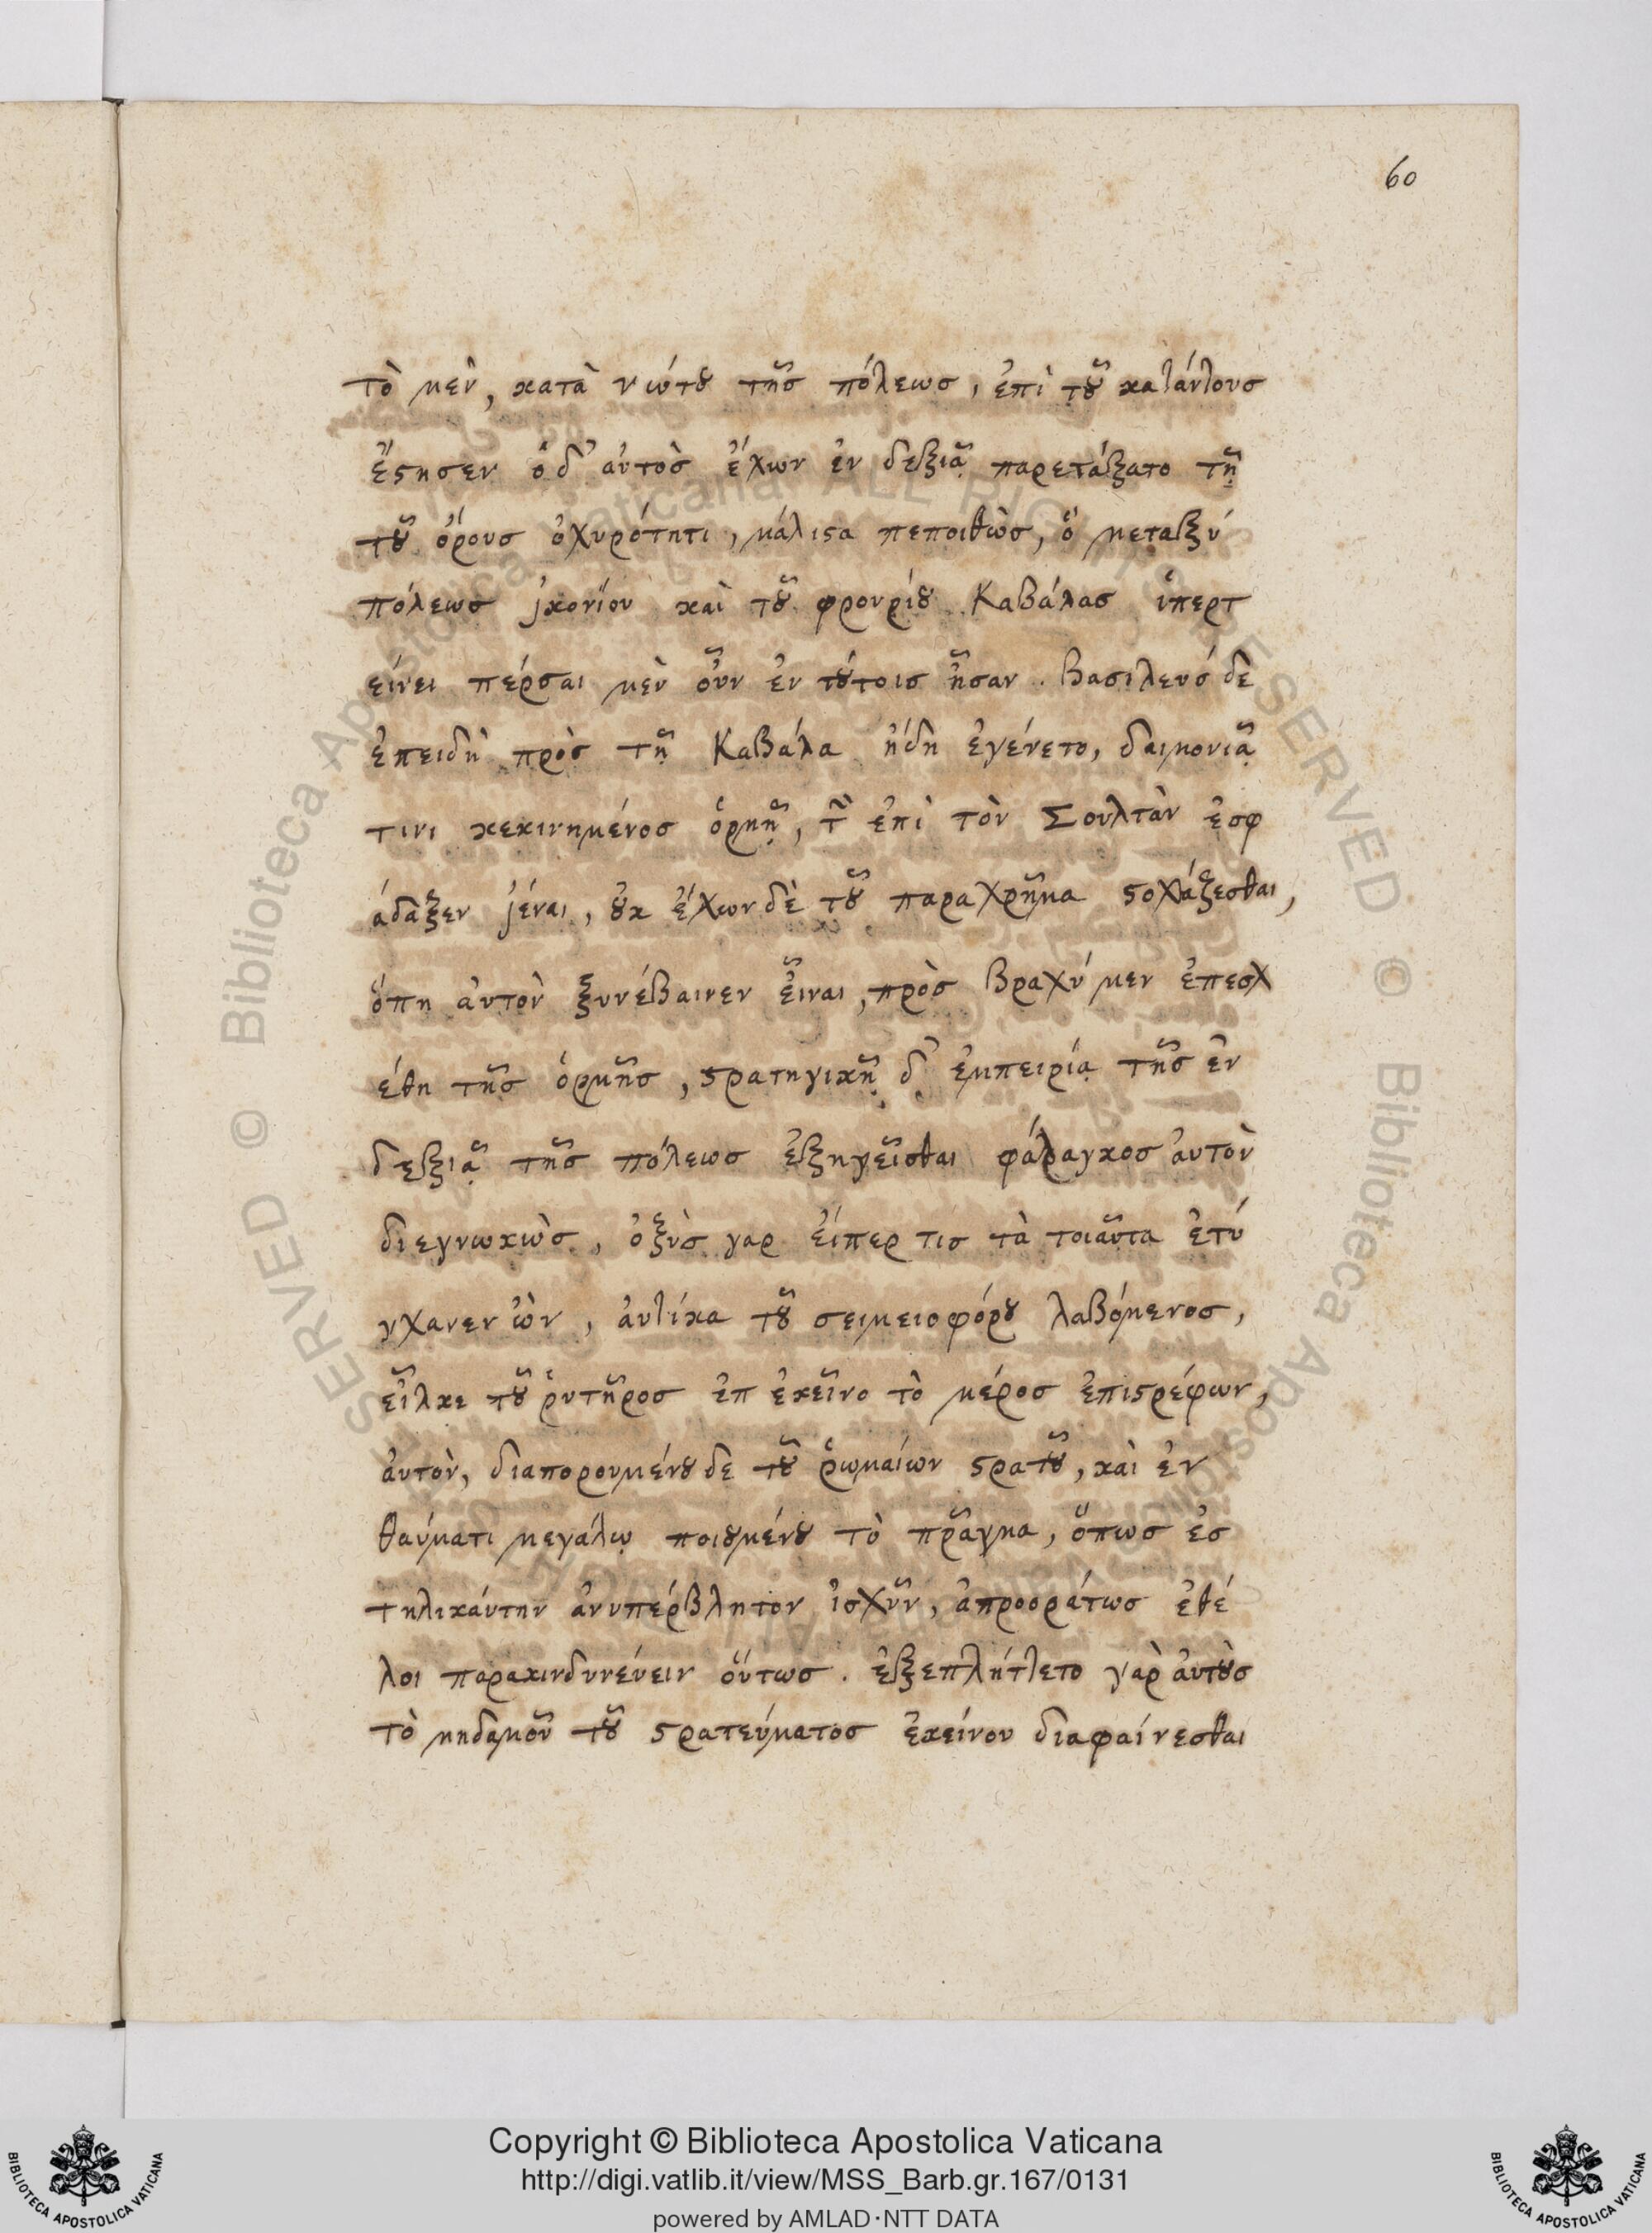 60
τὸ μεν̀, κατὰ νώτȣ τῆς πόλεως, ἐπὶ τȣ͂ κατάντους
ἔϛησεν ὁδ' ἀυτὸς ἔχων ἐν δεξιᾷ παρετάξατο τῇ
τȣ͂ ὄρους ὀχυρότητι, μάλιϛα πεποιθὼς, ὃ μεταξύ
πόλεως ἰκονίου καὶ τȣ͂ φρουρίȣ Καβάλας ὑπερτ
είνει πέρσαι μὲν οὖν ἐν τȣ́τοις ἦσαν. Βασιλευσ́ δε
ἐπειδὴ πρὸς τῇ Καβάλα ἤδη ἐγένετο, δαιμονιᾷ
τινι κεκινημένος ὁρμῇ, τ̃ ἐπὶ τὸν Σουλτὰν ἐσφ
άδαξεν ἰέναι, ȣκ ἔχων δὲ τȣ͂ παραχρῆμα ϛοχάζεσθαι,
ὅπη ἀυτὸν ξυνέβαινεν εἶναι, πρὸς βραχύ μεν ἐπεσχ
έθη τῆς ὁρμῆς, ϛρατηγικῇ δ' ἐμπειρίᾳ τῆς ἐν
δεξιᾷ τῆς πόλεως ἐξηγεῖσθαι φάραγκος ἀυτὸν
διεγνωκὼς, ὀξὺς γαρ ἔιπερ τις τὰ τοιαῦτα ἐτύ
γχανεν ὢν, ἀυτίκα τȣ͂ σειμειοφόρȣ λαβόμενος,
εἷλκε τȣ͂ ῥυτῆρος ἐπ ἐκεῖνο τὸ μέρος ἐπιϛρέφων,
ἀυτὸν, διαπορουμένȣ δε τȣ͂ ῥωμαίων ϛρατȣ͂, καὶ ἐν
θαύματι μεγάλῳ ποιȣμένȣ τὸ πρᾶγμα, ὅπως ἐσ
τηλικάυτην ἀνυπέρβλητον ἰσχῦν, ἀπροορράτως ἐθέ
λοι παρακινδυνέυειν οὕτως. ἐξεπλήττετο γαρ̀ ἀυτȣ̀ς
τὸ μηδαμοῦ τȣ͂ ϛρατεύματος ἐκείνου διαφαίνεσθαι
Copyright © Biblioteca Apostolica Vaticana
http://digi.vatlib.it/view/MSS_Barb.gr.167/0131
powered by AMLAD·NTT DATA